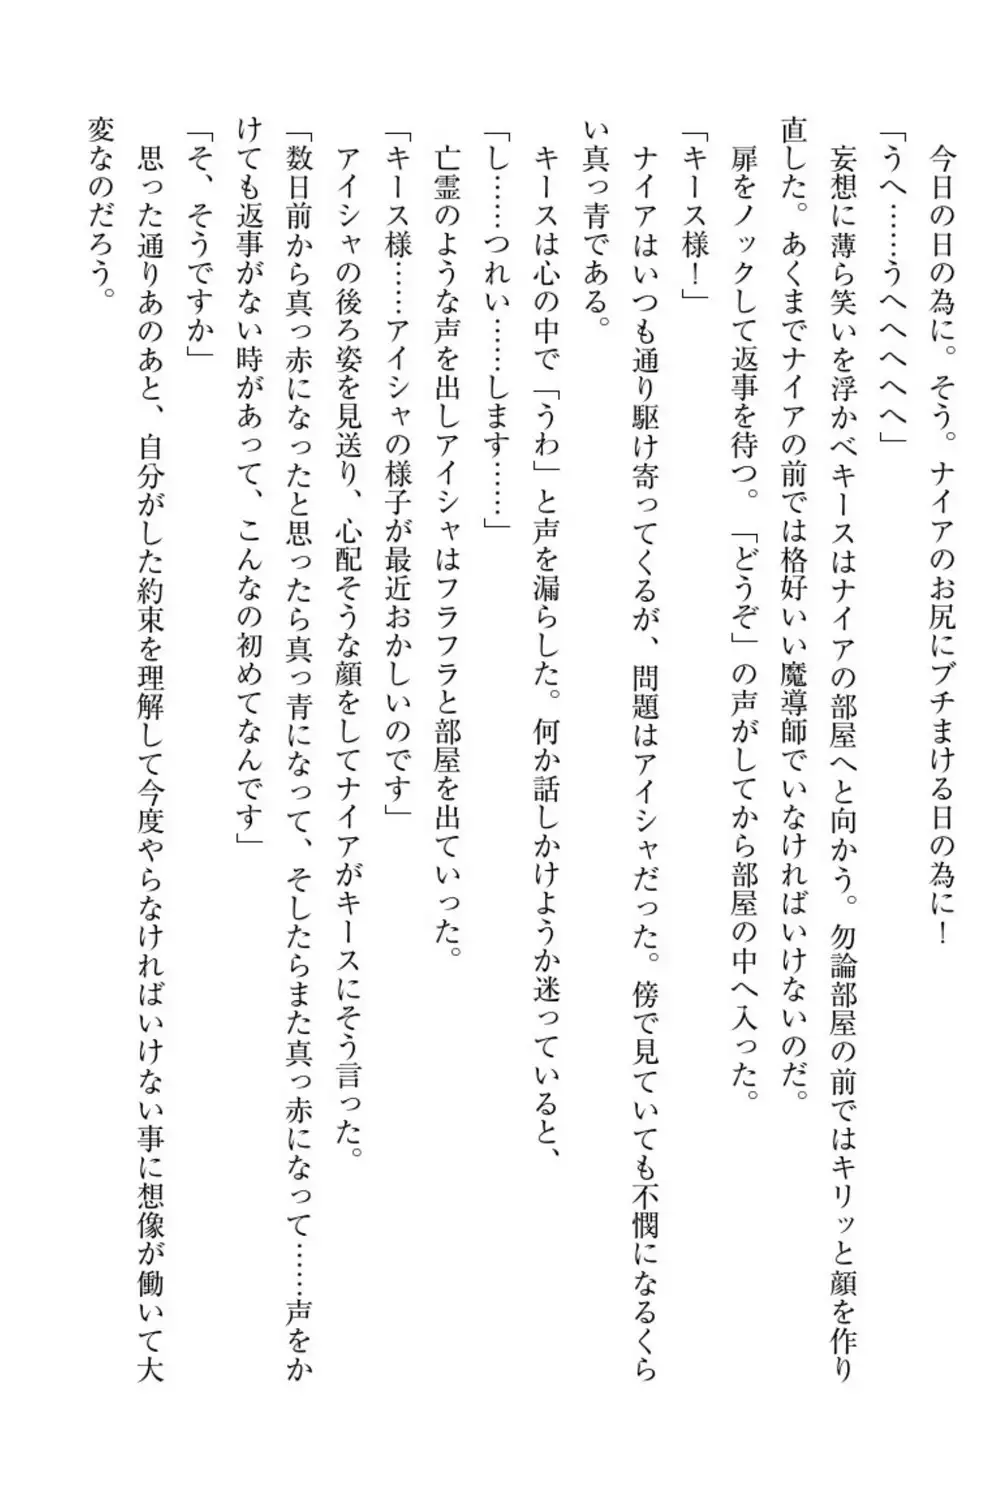 今日の日の為に。そう。ナイアのお尻にブチまける日の為に！
「うへ……うへへへへへ」
妄想に薄ら笑いを浮かべキースはナイアの部屋へと向かう。勿論部屋の前ではキリッと顔を作り
直した。あくまでナイアの前では格好いい魔導師でいなければいけないのだ。
扉をノックして返事を待つ。「どうぞ」の声がしてから部屋の中へ入った。
「キース様！」
ナイアはいつも通り駆け寄ってくるが、問題はアイシャだった。傍で見ていても不憫になるくら
い真っ青である。
キースは心の中で「うわ」と声を漏らした。何か話しかけようか迷っていると、
「し……つれい……します……」
亡霊のような声を出しアイシャはフラフラと部屋を出ていった。
「キース様……アイシャの様子が最近おかしいのです」
アイシャの後ろ姿を見送り、心配そうな顔をしてナイアがキースにそう言った。
「数日前から真っ赤になったと思ったら真っ青になって、そしたらまた真っ赤になって……声をか
けても返事がない時があって、こんなの初めてなんです」
「そ、そうですか」
思った通りあのあと、自分がした約束を理解して今度やらなければいけない事に想像が働いて大
変なのだろう。